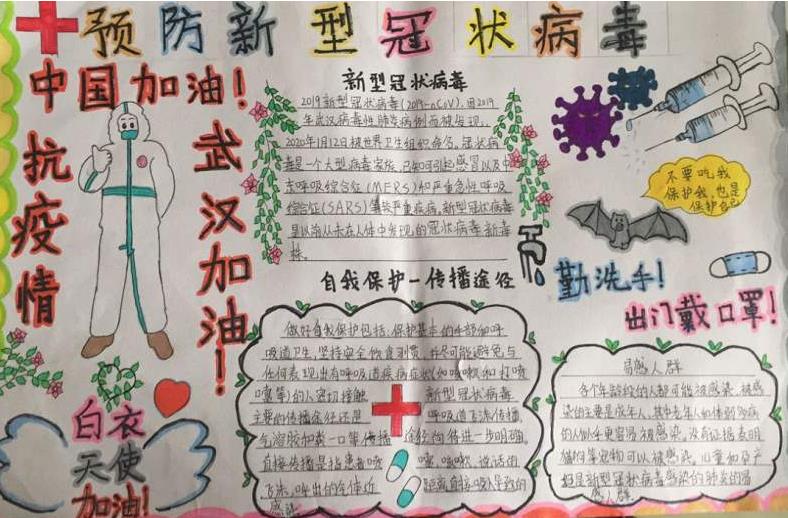 预防新型冠状病毒
中国加油!
抗疫情
武汉加油!
新型冠状病毒
2019新型冠状病毒(2019-nCoV),因2019
年武汉病毒性肺炎病例而被发现,
2020年1月12日被世界卫生组织命名。冠状病
毒是一个大型病毒家族,已知可引起感冒以及中
东呼吸综合征(MERS)和严重急性呼吸
综合征(SARS)等较严重疾病。新型冠状病毒
是以前从未在人体中发现的冠状病毒新毒
株。
不要吃我
保护我,也是
保护自己
勤洗手!
出门戴口罩!
自我保护-传播途径
做好自我保护包括:保护基本的手部和呼
吸道卫生,坚持安全饮食习惯,并尽可能避免与
任何表现出有呼吸道疾病症状(如咳嗽和打喷
嚏等)的人密切接触 新型冠状病毒
主要的传播途径还是 呼吸道飞沫传播,
气溶胶和粪-口等传播 途径尚待进一步明确,
直接传播是指患者喷 嚏、咳嗽、说话的
飞沫,呼出的气体近 距离直接吸入导致的
感染
易感人群
各个年龄段的人都可能被感染,被感
染的主要是成年人,其中老年人和体弱多病
的人似乎更容易被感染。没有证据表明
猫狗等宠物可以被感染。儿童和孕产
妇是新型冠状病毒感染的肺炎的易
感人群
白衣
天使
加油!